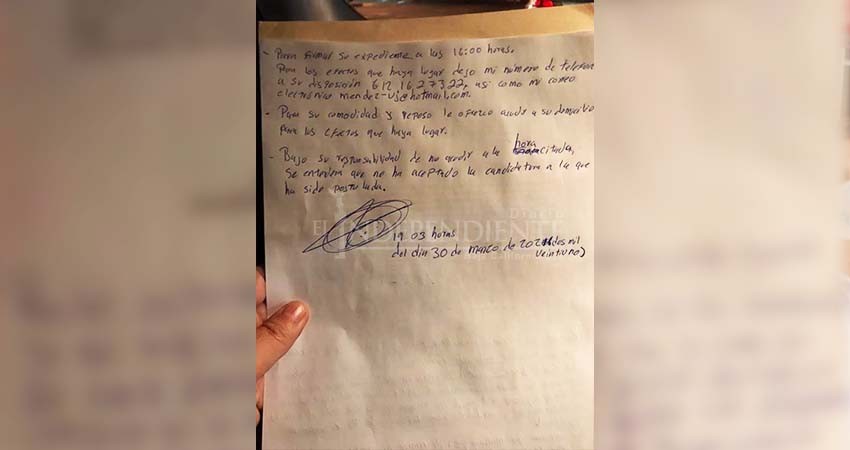 - Para firmar su expediente a las 16:00 horas.
Para los efectos que haya lugar dejo mi número de telefono
a su disposición 612 1627322, así como mi correo
electrónico mendez-vj@hotmail.com.
- Para su comodidad y reposo le ofrezco acudir a su domicilio
para los efectos que haya lugar.
hora
- Bajo su responsabilidad de no acudir a la citada,
se entendera que no ha aceptado la candidatura a la que
ha sido postulada.
Diario
EL INDEPENDIENTE
19 03 horas
del día 30 de marzo de 2021 (dos mil
veintiuno)